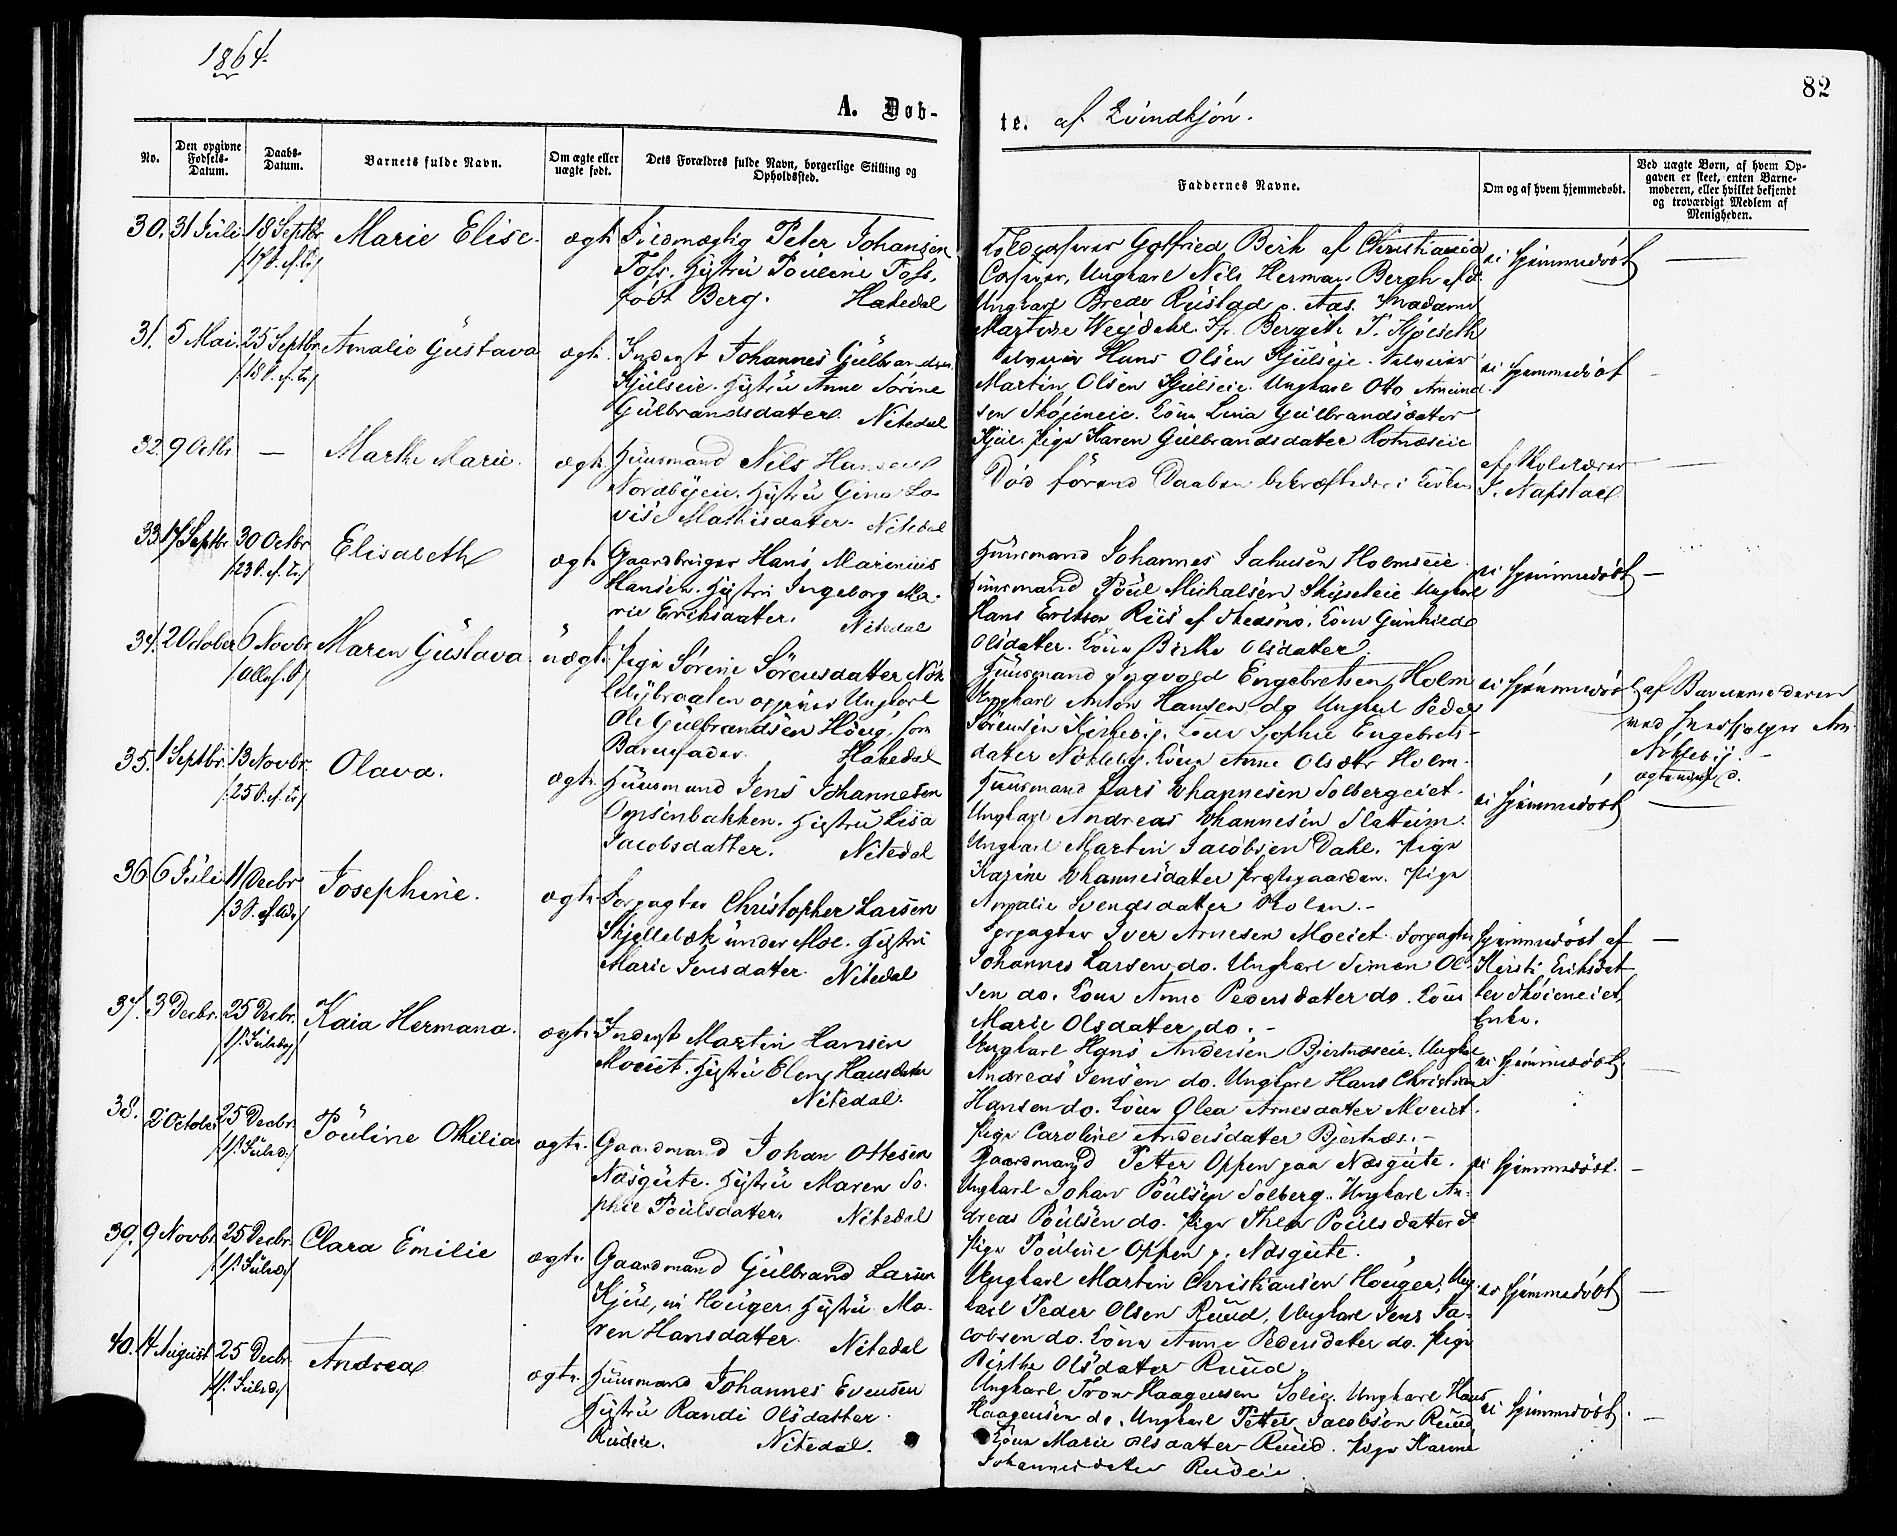 1864.
82
A. Døb-
te. af Qvindkjön.
No.
Den opgivne Fødsels-Datum.
Daabs-Datum.
Barnets fulde Navn.
Om ægte eller uægte født.
Dets Forældres fulde Navn, borgerlige Stilling og Opholdssted.
Faddernes Navne.
Om og af hvem hjemmedøbt.
Ved uægte Børn, af hvem Opgaven er skeet, enten Barnemoderen, eller hvilket bekjendt og troværdigt Medlem af Menigheden.
30. 31 Juli 18 Septbr Marie Elise. ægte Peter Johansen
Foss. Hustru Pouline Foss,
født Berg. Hakedal
Gotfried Birk af Christiania
Ungkarl Nils Herman Bergh
Ungkarl Rustad p. Aas. Madame
ei hjemmedöbt —
31. 5 Mai. 25 Septbr. Amalie Gustava ægte. Inderst Johannes Gulbrandsen
Kjulseie. Hustru Anne Sorine
Gulbrandsdatter. Nitedal
Hans Olsen Kjulseie.
Martin Olsen Kjulseie. Ungkarl Otto
Kone Lina Gulbrandsdatter
Kjul. Pige Karen Gulbrandsdatter Rotnæseie
ei hjemmedöbt
32. 9 Octbr — Marthe Marie. ægte. Huusmand Nils Hansen
Nordbyeie. Hustru Gina Lo-
vise Mathisdatter. Nitedal
Död förend Daaben bekræftedes i Kirken
af Skolelærer
33. 17 Septbr. 30 Octbr Elisabeth ægte Gaardbruger Hans Marinius
Hansen. Hustru Ingeborg Ma-
rie Eriksdatter. Nitedal
Huusmand Johannes Holmseie.
Huusmand Poul Michalsen Ungkarl
Hans Eriksen Riis af Skedsmo. Kone Gunhild
Olsdatter. Kone Birthe Olsdatter.
ei hjemmedöbt —
34. 2 October 6 Novbr Maren Gustava uægte. Pige Sörine Sörensdatter Nök-
lebybraaten opgiver Ungkarl
Ole Gulbrandsen Houg, som
Barnefader. Hakedal
Huusmand Ingvald Engebretsen Holm
Ungkarl Anton Hansen do Ungkarl Peder
Sörensen Kone Sophie Engebrets-
datter Nökleby. Kone Anne Olsdtr Holm.
ei hjemmedöbt
af Barnemoderen
35. 1 Septbr. 13 Novbr. Olava. ægte Huusmand Jens Johannesen
Oppsenbakken. Hustru Lisa
Jacobsdatter. Nitedal
Huusmand Lars Johannesen Solbergeiet.
Ungkarl Andreas Johannesen Slattum.
Ungkarl Martin Jacobsen Dahl. Pige
Karine Johannesdatter Præstegaarden. Pige
Amalie Svendsdatter Skolen.
ei hjemmedöbt
36 6 Juli 11 Decbr Josephine. ægte. Forpagter Christopher Larsen
Skjellebæk under Moe. Hustru
Marie Jensdatter. Nitedal
Forpagter Iver Arnesen Moeiet. Forpagter
Johannes Larsen do. Ungkarl Simen Ol-
sen do. Kone Anne Pedersdatter do. Kone
Marie Olsdatter do.
hjemmedöbt af
Kirsti Eriksdat-
ter Sköieneiet
Enke.
37. 3 Decbr. 25 Decbr. Kaia Hermana. ægte. Inderst Martin Hansen
Moeiet. Hustru Elen Hansdatter
Nitedal.
Ungkarl Hans Andersen Bjertnæseie. Ungkarl
Andreas Jensen do. Ungkarl Hans Christian
Hansen do. Kone Olea Arnesdatter Moeiet.
Pige Caroline Andersdatter Bjertnæs.
ei hjemmedöbt.
38. 2 October 25 Decbr. Pouline Othilia ægte. Gaardmand Johan Ottesen
Næsgute. Hustru Maren So-
phie Poulsdatter. Nitedal
Gaardmand Petter Oppen paa Næsgute.
Ungkarl Johan Poulsen Solberg. Ungkarl An-
dreas Poulsen do. Pige Thea Poulsdatter do
Pige Pouline Oppen p. Næsgute.
ei hjemmedöbt. —
39. 9 Novbr. 25 Decbr. Clara Emilie ægte. Gaardmand Gulbrand Larsen
Kjul, nu Houger. Hustru Ma-
ren Hansdatter. Nitedal
Ungkarl Martin Christiansen Houger, Ung-
karl Peder Olsen Ruud, Ungkarl Jens Ja-
cobsen do. Kone Anne Pedersdatter do. Pige
Birthe Olsdatter Ruud.
ei hjemmedöbt —
40. 14 August 25 Decbr. Andrea ægte. Huusmand Johannes Evensen
Hustru Randi Olsdatter.
Rudeie. Nitedal.
Ungkarl Tron Haagensen Ungkarl Hans
Haagensen do. Ungkarl Petter Jacobsen Ruud
Kone Marie Olsdatter Ruud. Pige Karine
Johannesdatter Rudeie
ei hjemmedöbt. —